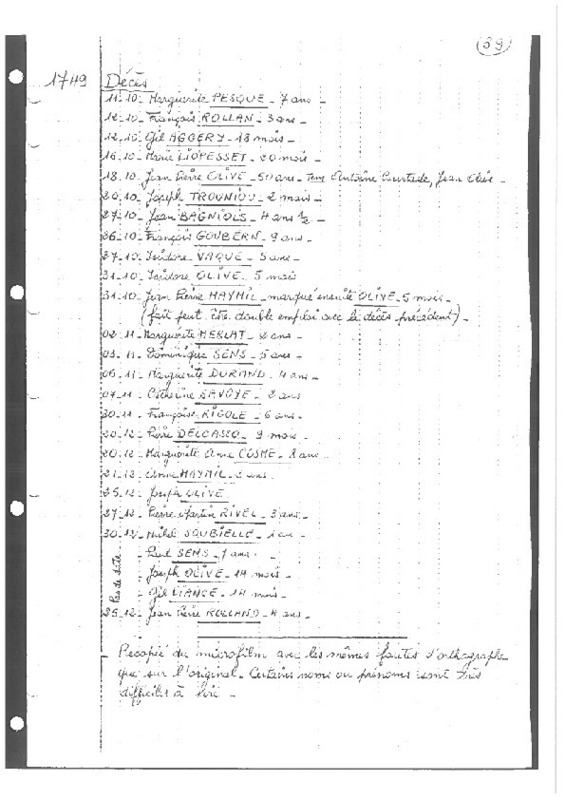 59
1749 Décès
11.10_ Marguerite PESQUE _ 7 ans _
12.10_ François ROLLAN _ 3 ans _
12.10_ Gil AGGERY _ 18 mois _
16.10_ Marie LIOPESSET _ 20 mois _
18.10_ Jean Pierre OLIVE _ 50 ans _ Tem. d'Antoine Courtade, Jean Olive _
20.10_ Joseph TROUNIOU _ 2 mois _
27.10_ Jean BAGNIOLS _ 4 ans ½ _
26.10_ François GOUBERN _ 9 ans _
27.10_ Isidore VAQUÉ _ 5 ans _
31.10_ Isidore OLIVE _ 5 mois
31.10_ Jean Pierre MAYMIL _ marqué ensuite OLIVE _ 5 mois _
(fait peut être double emploi avec le décès précédent) _
02.11_ Marguerite MERLAT _ 2 ans _
03.11_ Dominique SENS _ 5 ans _
06.11_ Marguerite DURAND _ 4 ans _
07.11_ Catherine SAVOYE _ 2 ans
30.11_ Françoise RIGOLE _ 6 ans _
20.12_ Pierre DELCASSO _ 9 mois _
20.12_ Marguerite Anne COSME _ 2 ans _
21.12_ Anne MAYMIL _ 2 ans _
25.12_ Joseph OLIVE
27.12_ Pierre Martin RIVEL _ 3 ans _
30.12_ Michel SOUBIELLE _ 1 an _
Pas de date
_ Paul SENS _ 7 ans _
_ Joseph OLIVE _ 14 mois _
_ Gil LIANCE _ 14 mois _
25.12_ Jean Pierre ROLLAND _ 4 ans _
_ Recopié du microfilm avec les mêmes fautes d'orthographe
que sur l'original. Certains noms ou prénoms sont très
difficiles à lire _